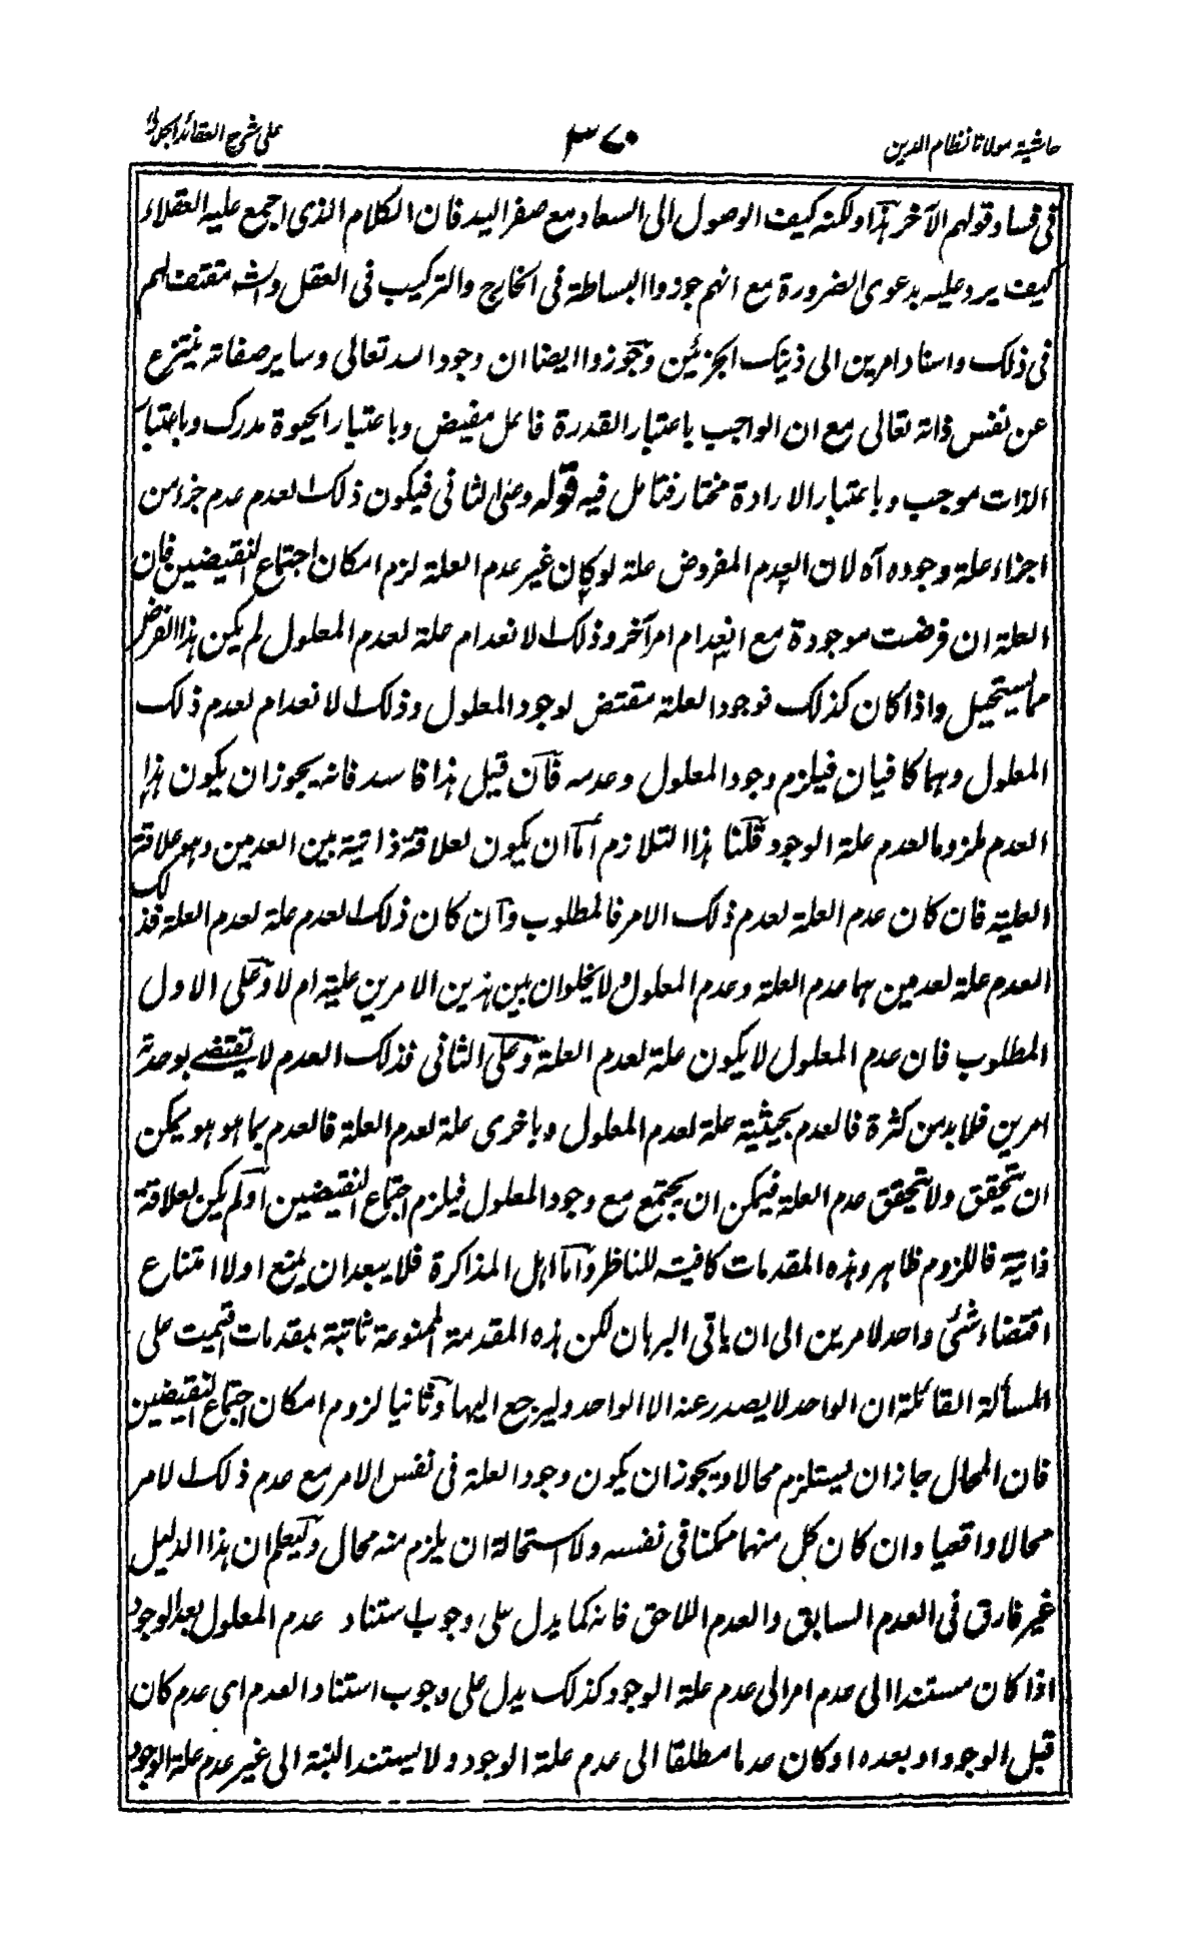 حاشية مولانا نظام الدين
٣٧٠
على شرح العقائد الجلالي
فى فساد قولهم الآخر هذا ولكنه كيف الوصول الى السعاد مع صفر اليد فان الكلام الذى اجمع عليه العقلاء
كيف يرد عليه بدعوى الضرورة مع انهم جوزوا البساطة فى الخارج والتركيب فى العقل مقتف لهم
فى ذلك واسناد امرين الى ذينك الجزئين وجوزوا ايضا ان وجود الله تعالى وساير صفاته ينتزع
عن نفس ذاته تعالى مع ان الواجب باعتبار القدرة فاعل مفيض وباعتبار الحيوة مدرك وباعتبار
الذات موجب وباعتبار الارادة مختار فتامل فيه قوله وعلى الثانى فيكون ذلك لعدم عدم جزء من
اجزاء علة وجوده آه لان العدم المفروض علة لو كان غير عدم العلة لزم امكان اجتماع النقيضين فان
العلة ان فرضت موجودة مع انعدام امر آخر وذلك الانعدام علة لعدم المعلول لم يكن هذا الفرض
مما يستحيل واذا كان كذلك فوجود العلة مقتض لوجود المعلول وذلك الانعدام لعدم ذلك
المعلول وهما كافيان فيلزم وجود المعلول وعدمه فان قيل هذا فاسد فانه يجوز ان يكون هذا
العدم ملزوما لعدم علة الوجود قلنا هذا التلازم اما ان يكون لعلاقة ذاتية بين العدمين وهو علاقة
العلية فان كان عدم العلة لعدم ذلك الامر فالمطلوب وان كان ذلك لعدم علة لعدم العلة فذلك
العدم علة لعدمين هما عدم العلة وعدم المعلول ولا يخلو ان بين هذين الامرين علية ام لا وعلى الاول
المطلوب فان عدم المعلول لا يكون علة لعدم العلة وعلى الثانى فذلك العدم لا يقتضى بوحدته
امرين فلا بد من كثرة فالعدم بحيثية علة لعدم المعلول وباخرى علة لعدم العلة فالعدم بما هو هو يمكن
ان يتحقق ولا يتحقق عدم العلة فيمكن ان يجتمع مع وجود المعلول فيلزم اجتماع النقيضين او لم يكن لعلاقة
ذاتية فاللزوم ظاهر وهذه المقدمات كافية للناظر واما اهل المذاكرة فلا يبعد ان يمنع اولا امتناع
اقتضاء شئ واحد لامرين الى ان ياتى البرهان لكن هذه المقدمة الممنوعة ثابتة بمقدمات اقيمت على
المسألة القائلة ان الواحد لا يصدر عنه الا الواحد وليرجع اليها وثانيا لزوم امكان اجتماع النقيضين
فان المحال جاز ان يستلزم محالا ويجوز ان يكون وجود العلة فى نفس الامر مع عدم ذلك الامر
محالا واقعيا وان كان كل منهما ممكنا فى نفسه ولا استحالة ان يلزم منه محال وليعلم ان هذا الدليل
غير فارق فى العدم السابق والعدم اللاحق فانه كما يدل على وجوب استناد عدم المعلول بعد الوجود
اذا كان مستندا الى عدم امر الى عدم علة الوجود كذلك يدل على وجوب استناد العدم اى عدم كان
قبل الوجود او بعده او كان عدما مطلقا الى عدم علة الوجود ولا يستند البتة الى غير عدم علة الوجود